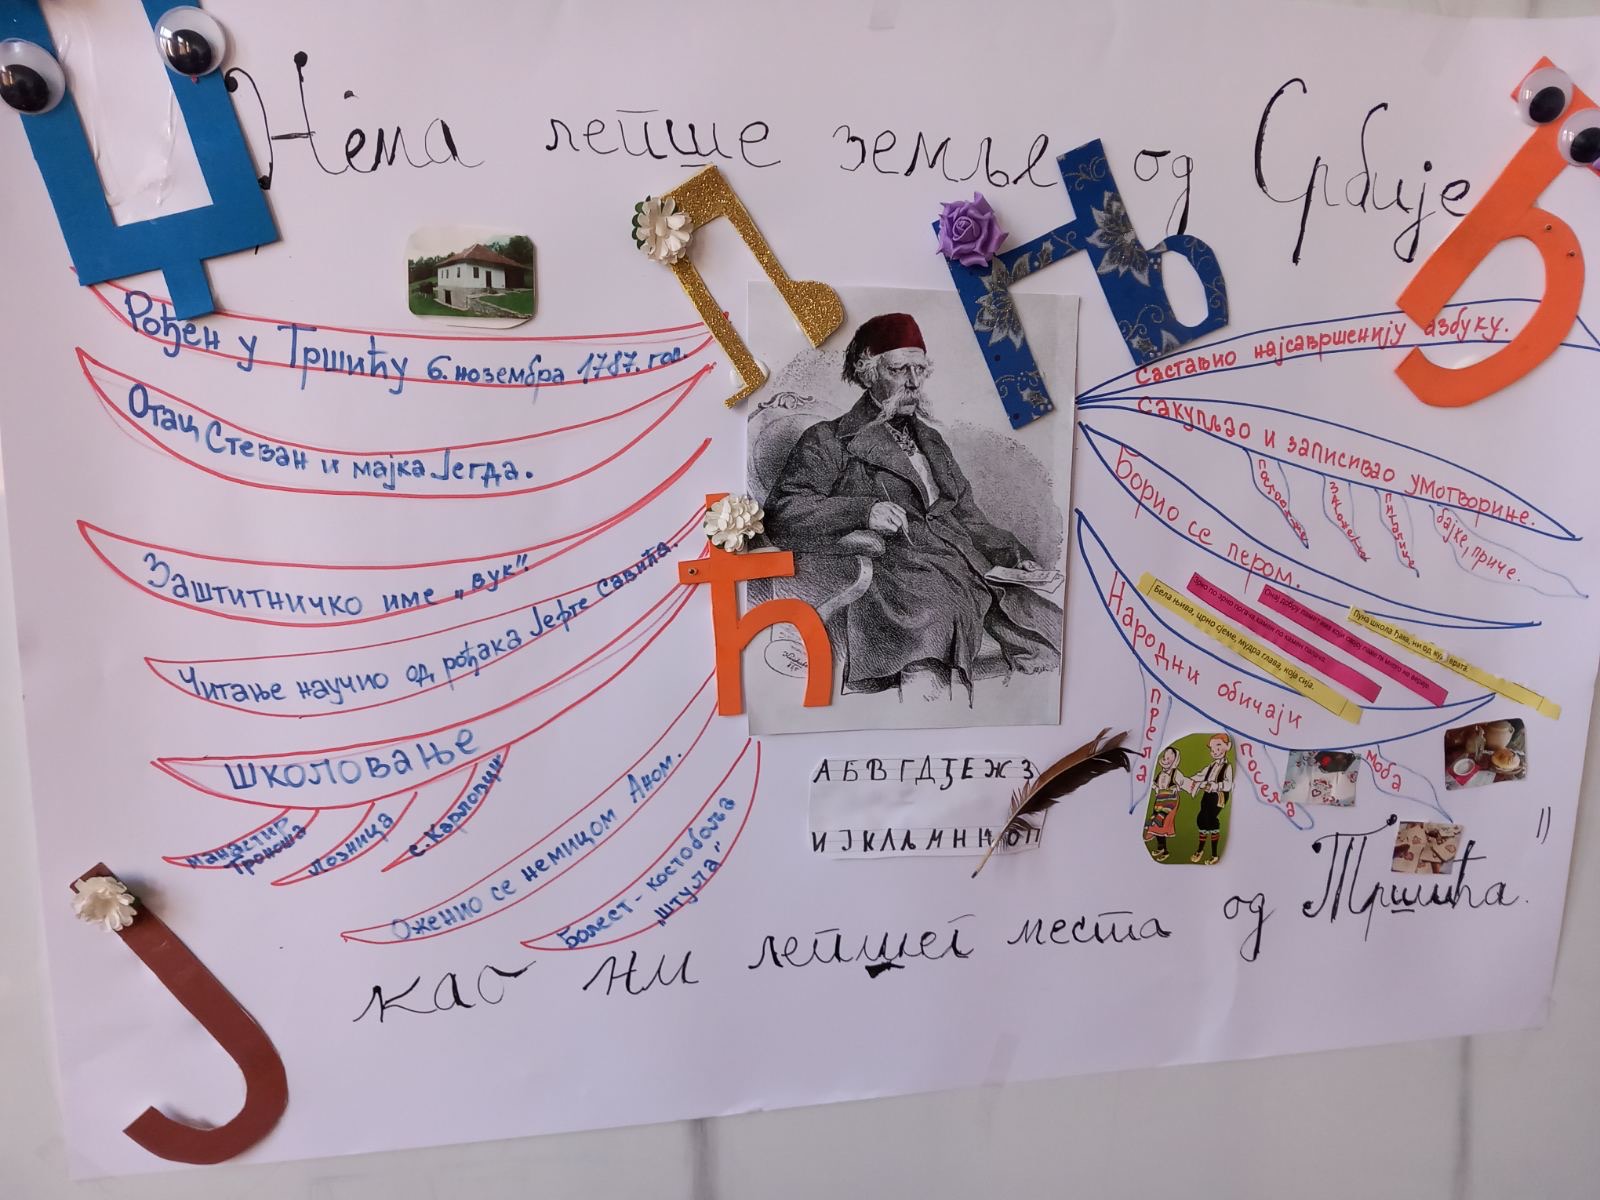 Нема лепше земље од Србије
Рођен у Тршићу 6. новембра 1787. год.
Отац Стеван и мајка Јегда.
Заштитничко име „вук“.
Читање научио од рођака Јефте Савића.
Школовање
манастир
Троноша
Лозница
С. Карловци
Оженио се немицом Аном.
Болест - костобоља
„штула“
Саставио најсавршенију азбуку.
Сакупљао и записивао умотворине.
пословице
загонетке
питалице
бајке, приче.
Борио се пером.
Бела њива, црно сјеме, мудра глава, која сија.
Зрно по зрно погача, камен по камен палача.
Пуна школа ђака, ни од куд врата.
Народни обичаји
прела
посела
моба
А Б В Г Д Ђ Е Ж З
И Ј К Л Љ М Н Њ О П
као ни лепшег места од Тршића.
Џ
Љ
Њ
Ђ
Ћ
Ј